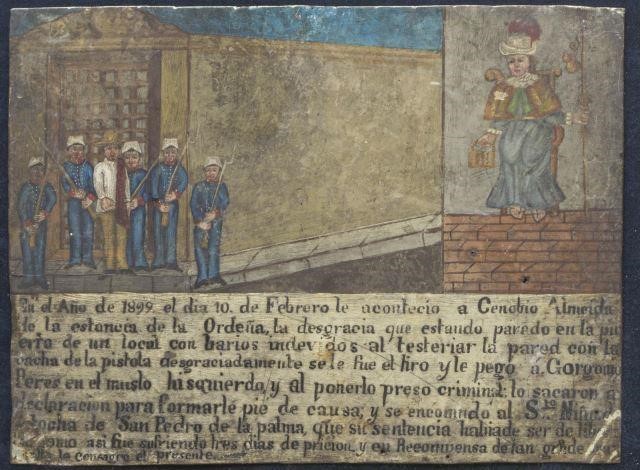 En el Año de 1899 el dia 10. de Febrero le acontecio a Cenobio Almeida
de la estancia de la Ordeña, la desgracia que estando parado en la pu
erta de un local con barios indevidos al testeriar la pared con la
cacha de la pistola desgraciadamente se le fue el tiro y le pego a Gorgonio
Peres en el muslo hisquierdo, y al ponerlo preso criminal; lo sacaron a
declaracion para formarle pié de causa; y se encomindo al Sto Niño
tocha de San Pedro de la palma, que su sentencia habia de ser de
como asi fue sufriendo tres dias de pricion, y en Recompensa de tan
la consagro el presente